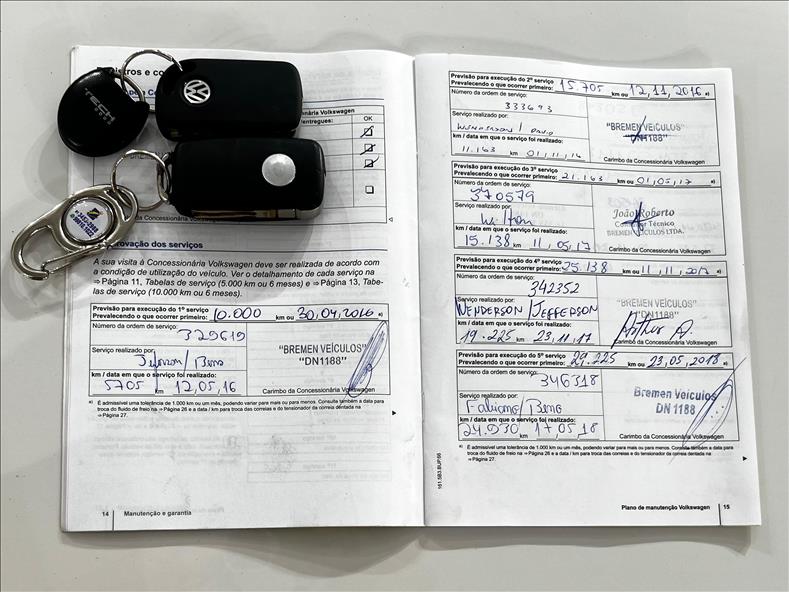 TECH
istros e co
onária Volkswagen
entregues:
OK
da Concessionária Volkswagen
rovação dos serviços
A sua visita à Concessionária Volkswagen deve ser realizada de acordo
com a condição de utilização do veículo. Ver o detalhamento de cada serviço na
⇒ Página 11, Tabelas de serviço (5.000 km ou 6 meses) e ⇒ Página 13, Tabe-
las de serviço (10.000 km ou 6 meses).
Previsão para execução do 1º serviço
Prevalecendo o que ocorrer primeiro: 10.000 km ou 30,04,2016 a)
Número da ordem de serviço:
329619
Serviço realizado por:
Jeferson/Beno
km / data em que o serviço foi realizado:
5705 km 12,05,16
"BREMEN VEÍCULOS"
"DN1188"
Carimbo da Concessionária Volkswagen
a) É admissível uma tolerância de 1.000 km ou um mês, podendo variar para mais ou para menos. Consulte também a data para
troca do fluido de freio na ⇒ Página 26 e a data / km para troca das correias e do tensionador da correia dentada na
⇒ Página 27.
14 Manutenção e garantia
Previsão para execução do 2º serviço
Prevalecendo o que ocorrer primeiro: 15.705 km ou 12,11,2016 a)
Número da ordem de serviço:
333693
Serviço realizado por:
Wenderson / David
km / data em que o serviço foi realizado:
11.163 km 01,11,16
"BREMEN VEÍCULOS"
"DN1188"
Carimbo da Concessionária Volkswagen
Previsão para execução do 3º serviço
Prevalecendo o que ocorrer primeiro: 21.163 km ou 01,05,17 a)
Número da ordem de serviço:
370579
Serviço realizado por:
Wilton
km / data em que o serviço foi realizado:
15.138 km 11,05,17
João Roberto
Consultor Técnico
BREMEN VEÍCULOS LTDA.
Carimbo da Concessionária Volkswagen
Previsão para execução do 4º serviço
Prevalecendo o que ocorrer primeiro: 25.138 km ou 11,11,2017 a)
Número da ordem de serviço:
342352
Serviço realizado por:
WENDERSON/JEFFERSON
km / data em que o serviço foi realizado:
19.225 km 23,11,17
"BREMEN VEÍCULOS"
"DN1188"
Carimbo da Concessionária Volkswagen
Previsão para execução do 5º serviço
Prevalecendo o que ocorrer primeiro: 29.225 km ou 23,05,2018 a)
Número da ordem de serviço:
346318
Serviço realizado por:
Fabiano/Beno
km / data em que o serviço foi realizado:
24.030 km 17,05,18
Bremen Veículos
DN 1188
Carimbo da Concessionária Volkswagen
a) É admissível uma tolerância de 1.000 km ou um mês, podendo variar para mais ou para menos. Consulte também a data para
troca do fluido de freio na ⇒ Página 26 e a data / km para troca das correias e do tensionador da correia dentada na
⇒ Página 27.
161.5B3.BUP.66
Plano de manutenção Volkswagen 15